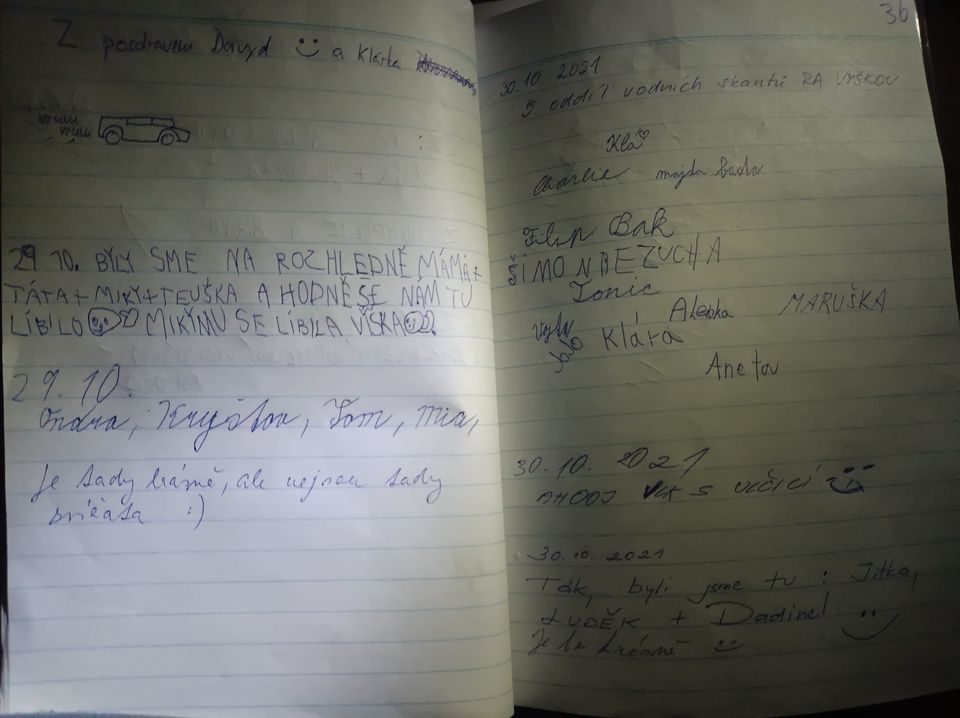 Z pozdravem Davyd a Klárka
vruu
vruu
29 10. BYLY SME NA ROZHLEDNĚ MÁMA+
TÁTA+MIKY+TEUŠKA A HODNĚ SE NÁM TU
LÍBILO MIKIMU SE LÍBILA VÍŠKA
29.10.
Ondra, Kryštov, Tom, Mia,
je tady krásně, ale nejsou tady
:)
36
30.10 2021
5 oddíl vodních skautů RA VYŠKOV
Klá
Charlie majda
Filip Bak
ŠIMON BEZUCHA
Tonic
Alenka MARUŠKA
Klára
30.10.2021
AHOOJ VLK S VLČICÍ
30.10.2021
Ták, byli jsme tu : Jitka,
LUDĚK + Dadine!
Je tu krásně